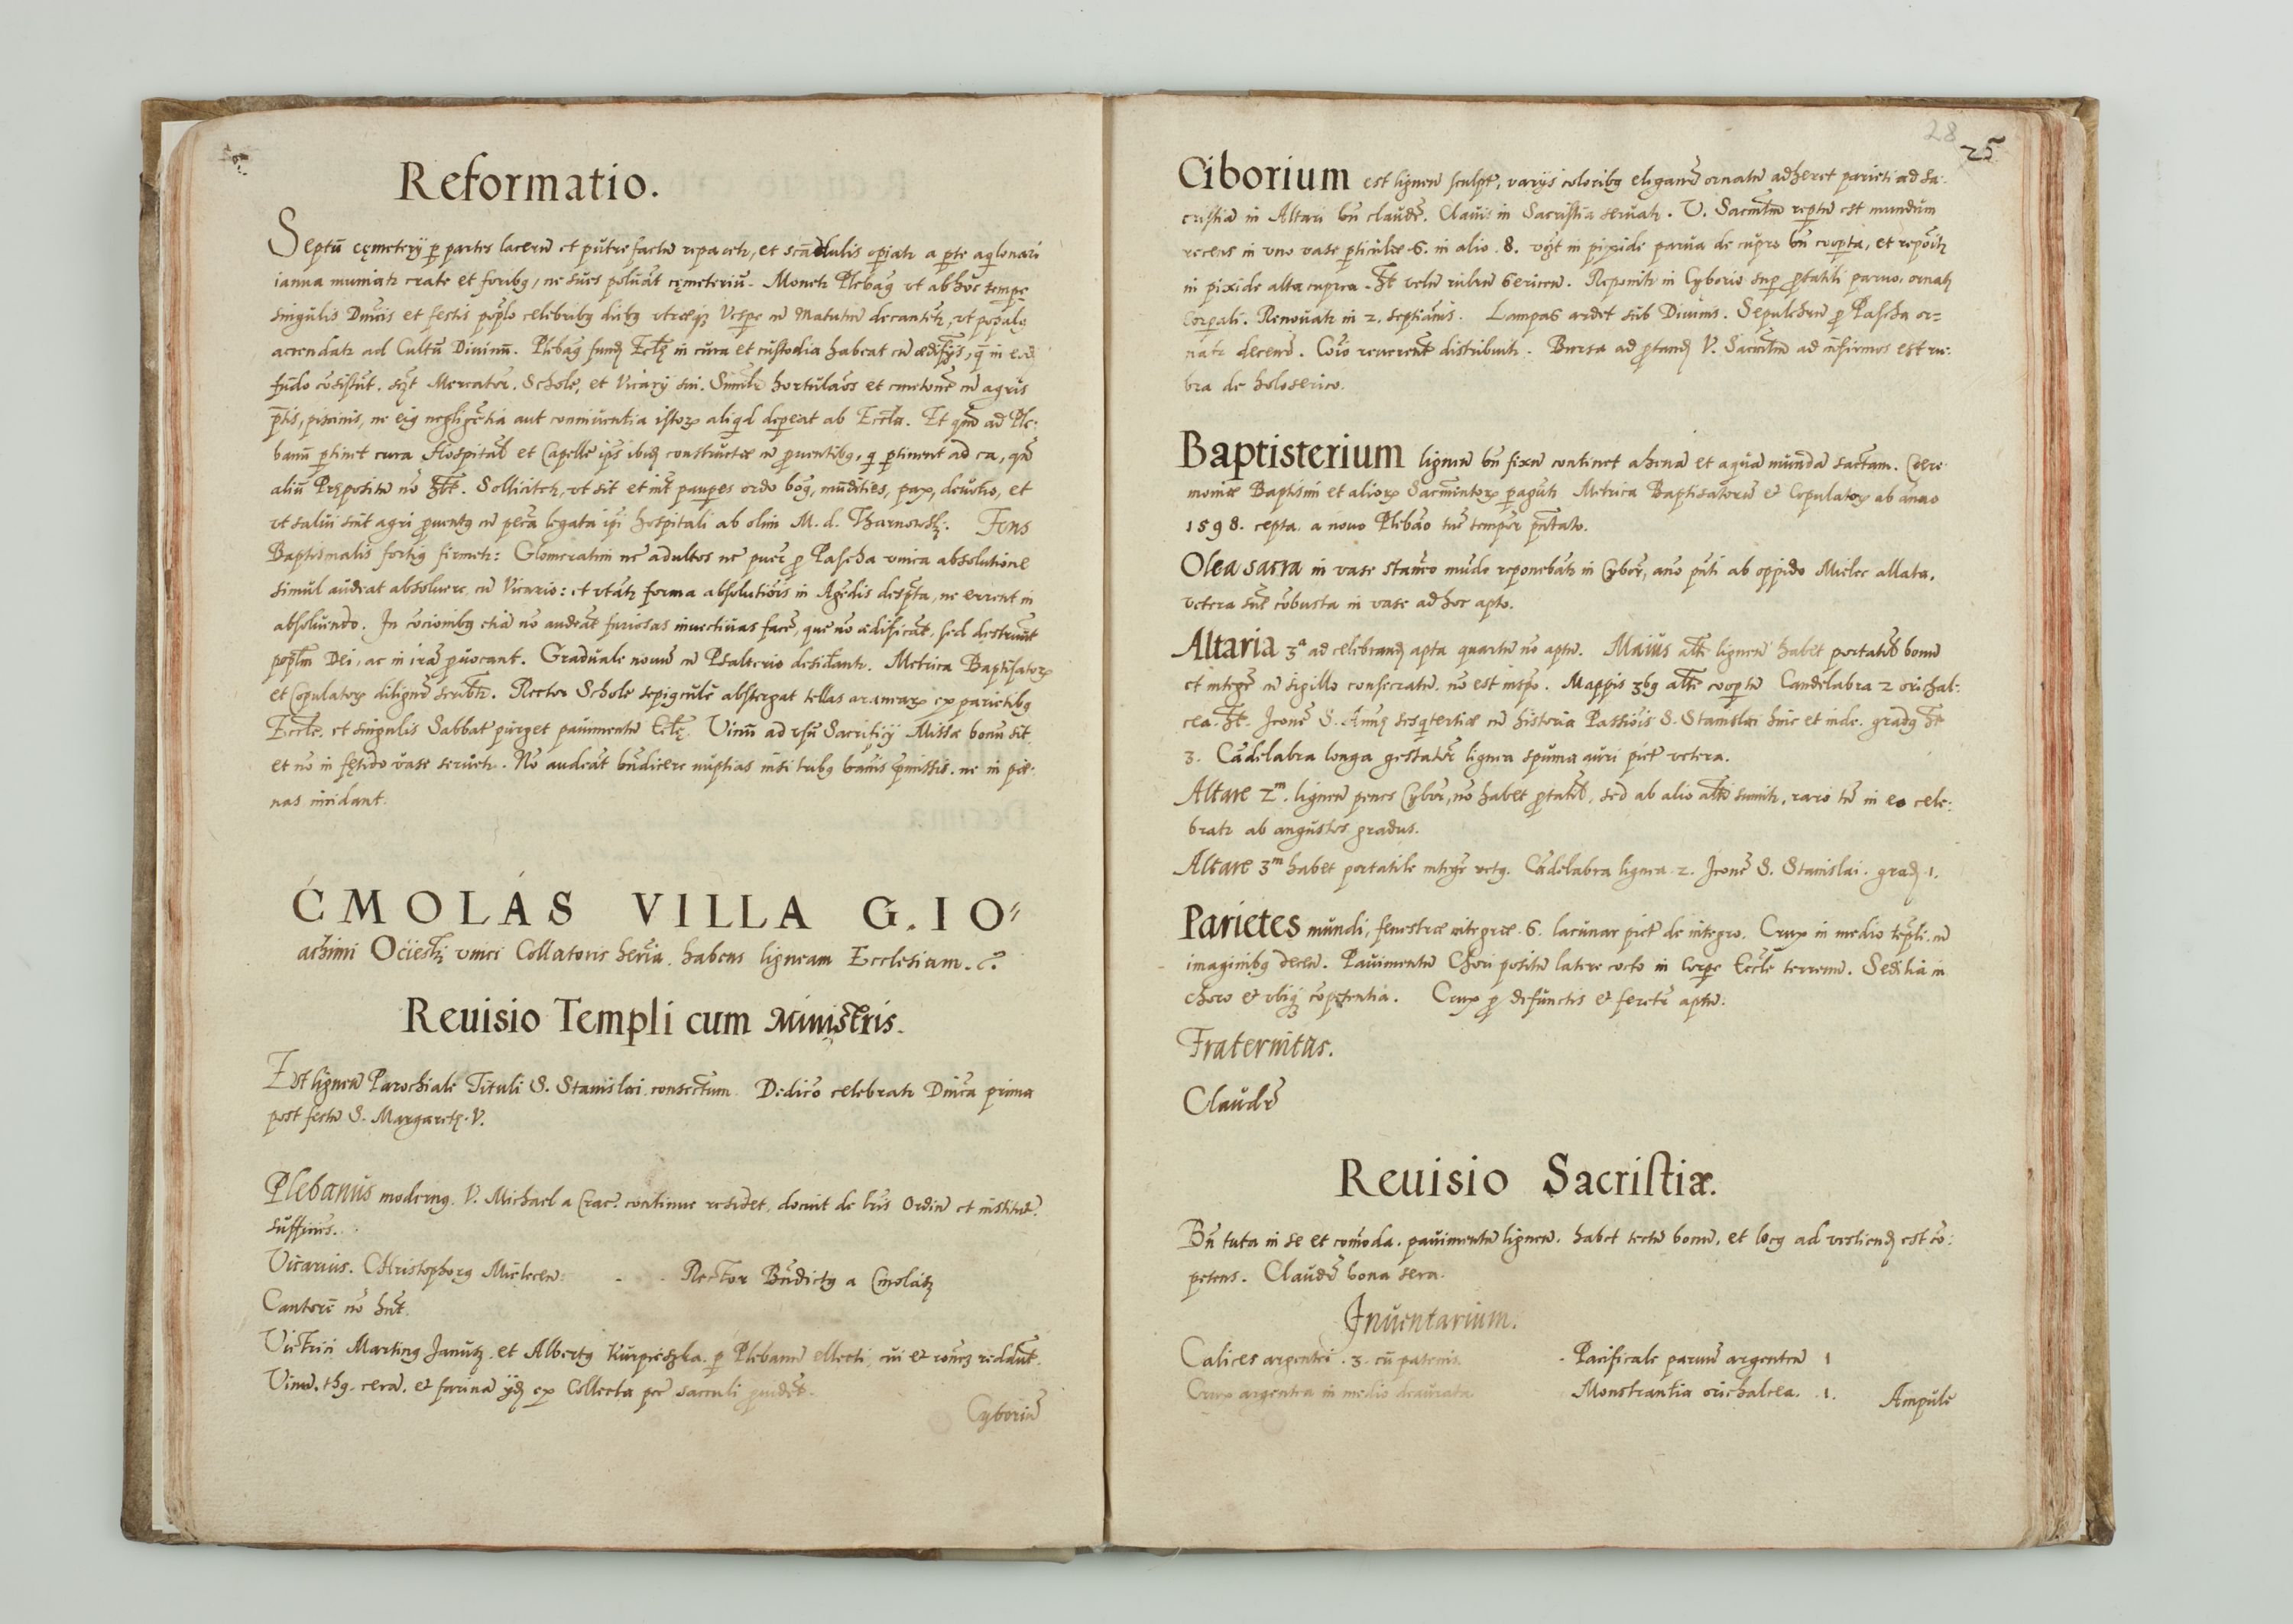 Reformatio.
Septū cęmeterij ꝑ partes lacerū et putrefactū reparetr, et scādulis opiatr a ꝑte aqlonari
ianua muniatr crate et foribꝯ, ne sues poluāt cęmeteriū. Monetr Plebaꝯ vt ab hoc tempe
singulis Dnicis et festis poplo celebribꝯ diebꝯ vtræqꝫ Vespe cū Matutin decantētr, vt populꝯ
accendatr ad Cultū Divinū. Plebaꝯ fundi Ecclę in cura et custodia habeat cū ædificijs, q in eodē
fūdo cōsistūt. Mercator. Scholę, et Vicarij sui. Simlr hortulaōs et cmetonē cū agris
ptis, piscinis, ne eiꝯ negligētia aut conniventia istoꝝ aliqd depeat ab Eccla. Et qm ad Ple:
banū ꝑtinet cura Hospitāl et Capellę ipiꝯ ibidē constructæ cū ꝓventibꝯ, q ꝑtinent ad ea, qā
aliū Prępositū nō hēt. Sollicitetr, vt sit et int paupes ordo boꝯ, mūdities, pax, devotio, et
vt salvi sint agri ꝓventꝯ cū pecia legata ipi hospitali ab olim M. d. Tharnowskꝫ. Fons
Baptismalis fortiꝯ firmetr: Glomeratim nē adultos nē puer ꝓ Pascha unica absolutione
simul audeat absoluere cū Vicario: et vtātr forma absolutiōis in Agēdis descpta, ne errent in
absoluendo. In cōcionibꝯ etiā nō audeāt furiosas invectivas facē, que nō ædificāt, sed destruūt
poplm Dei, ac in irā ꝓuocant. Graduale novū cū Psalterio desideratr. Metrica Baptisatoꝝ
et Copulatoꝝ diligentē scribatr. Rector Scholę sępiꝯculē abstergat tellas aranearꝝ ex parietibꝯ
Eccle, et singulis Sabbat purget pavimentū Ecclę. Vinū ad vsū Sacrificij Missæ bonū sit,
et nō in fętido vase seruetr. Nō audeāt bndicere nuptias nisi tribꝯ bānis pmissis, ne in pœ:
nas incidant.
ĆMOLÁS VILLA G. IO⸗
achimi Ociesky unici Collatoris heria. habens ligneam Ecclesiam.
Reuisio Templi cum Ministris.
Est ligneū Parochiale Tituli S. Stanislai consectum. Dedico celebratr Dnica prima
post festū S. Margaretę. V.
Plebanus modernꝯ. V. Michael a Crac. continue residet, docuit de lris Ordinū et institut.
suffines.
Vicarius. Christophorꝯ Mielecen: - - Rector Bndictꝯ a Cmolatz
Cantorē nō hnt.
Victrici Martinꝯ Janutz. et Albertꝯ Kurpieszka. ꝑ Plebanū ellecti, cui et rōnes reddūt.
Vinū. thꝯ. cerā. et farinā ijdē ex Collecta per sacculi ꝓuidēt.
Cyboriū
28 25
Ciborium est ligneū sculpt, varijs coloribꝯ eleganē ornatū adheret parieti ad Sa:
cristiā in Altari bn claudr. Clavis in Sacristia seruatr. V. Sacmtm reptū est mundum
recens in vno vase ꝑticulæ 6. in alio .8. in pixide parva de cupro bn coopta, et reponitr
in pixide alta cuprea. Hēt velū rubrū sericeū. Reponitr in Cyborio sup ꝓtatili parvo, ornatꝯ
Corpali. Renovatr in 2. septiānis. Lampas ardet sub Divinis. Sepulchrū ꝓ Pascha or=
natr decenr. Coīo reverentr distribuitr. Bursa ad ꝓtandū V. Sacmtm ad infirmos est ru:
bra de holoserico.
Baptisterium ligneū bn fixū continet ahenū et aquā mundā sactam. Cere:
moniæ Baptismi et alioꝝ Sacramintoꝝ ꝑagutr Metrica Baptisatorū et Copulatoꝝ ab anno
1598. cepta. a novo Plebāo tūc tempor pntato.
Olea sacra in vase stanēo mūdo reponebātr in Cybor, ano pnti ab oppido Mielec allata.
vetera sūt cōbusta in vase ad hoc apto.
Altaria 3ᵃ ad celebrandū apta quartū nō aptū. Maius altr ligneū habet portatil bonū
et integr cū sigillo consecratū. nō est inspō. Mappis 3bꝯ altre cooptū Candelabra 2 orichal:
cea. Hēt. Iconē S. Annę sesqtertiæ cū historia Passiōis S. Stanislai hinc et inde. gradꝯ hēt
3. Cādelabra longa gestator lignea spuma auri pict vetera.
Altare 2ᵐ. ligneū penes Cybor, nō habet ꝓtatil, sed ab alio altri sumitr, raro tn in eo cele:
bratr ab angustos gradus.
Altare 3ᵐ habet portatile integr vetꝯ. Cādelabra lignea 2. Iconē S. Stanislai. gradꝯ 1.
Parietes mundi, fenestræ integræ .6. lacunar pict de integro. Crux in medio tēpli cū
imaginibꝯ decen. Pavimentū Chori positū latere cocto in Corpe Eccle terreum. Sedilia in
choro et vbiqꝫ cōpetentia. Crux ꝓ defunctis et feretr aptū.
Fraternitas.
Claudr
Reuisio Sacristiæ.
Bn tuta in se et comoda. pavimentū ligneū. habet tectū bonū, et locꝯ ad vestiendū est cō:
petens. Claudr bona sera.
Inventarium.
Calices argentei .3. cū patenis. - Pacificale parvū argenteū 1
Crux argentea in medio deaurata Monstrantia orichalcea. .1.
Ampule